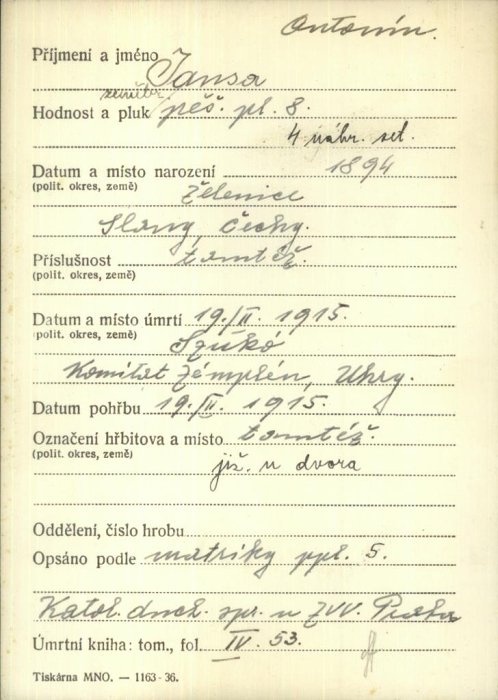 Antonín.
Příjmení a jméno Jansa
zeměbr.
Hodnost a pluk pěš. pl. 8.
4 náhr. set.
Datum a místo narození 1894
(polit. okres, země) Želenice
Slaný, Čechy.
Příslušnost tamtéž.
(polit. okres, země)
Datum a místo úmrtí 19./II. 1915.
(polit. okres, země) Szúkó
Komitát Zémplén, Uhry.
Datum pohřbu 19./II. 1915.
Označení hřbitova a místo tamtéž.
(polit. okres, země) již. u dvora
Oddělení, číslo hrobu
Opsáno podle matriky ppl. 5.
Katol. duch. spr. u ZVV. Praha
Úmrtní kniha: tom., fol. IV. 53.
Tiskárna MNO. — 1163-36.